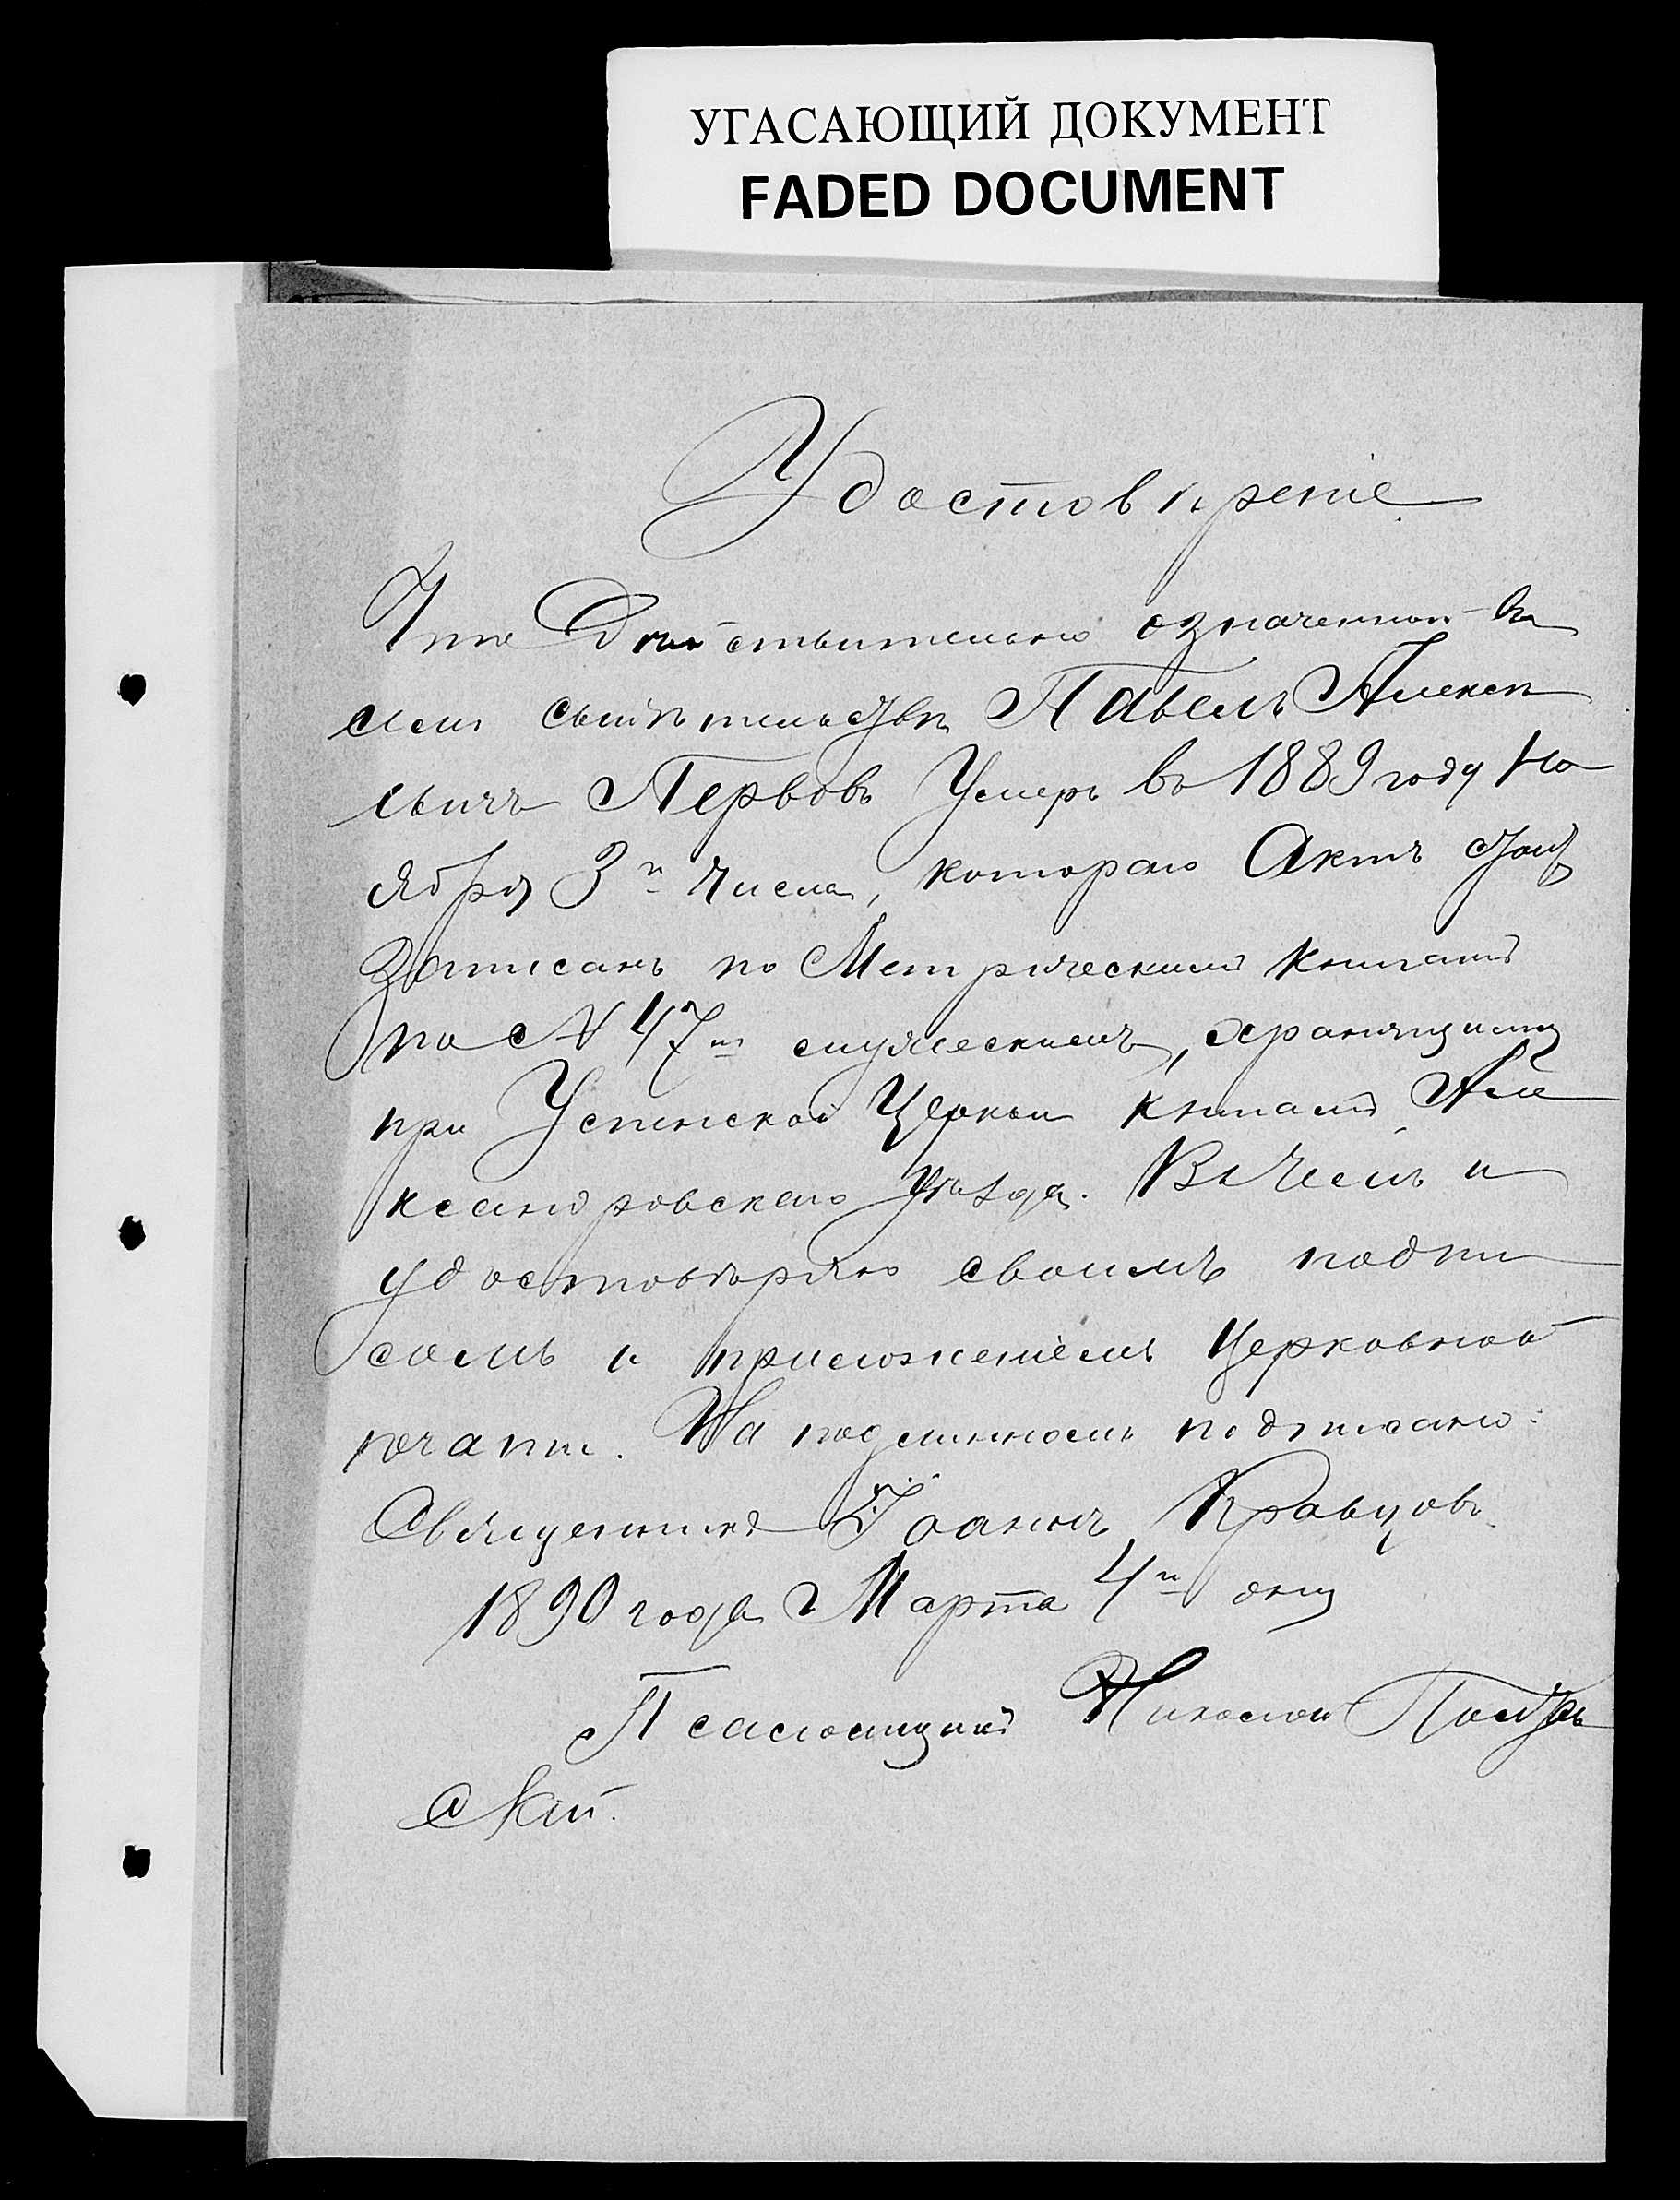 УГАСАЮЩИЙ ДОКУМЕНТ
FADED DOCUMENT
Удостовѣреніе
Что Дѣйствительно означенный въ
семъ свидѣтельствѣ Павелъ Алексѣ
евичъ Первовъ Умеръ въ 1889 году Но
ября 3го числа, котораго Актъ
Записанъ по Метрическимъ Книгамъ
по № 47м мужескимъ, хранящимся
при Успенской Церкви книгамъ Але
ксандровскаго Уѣзда. Въ чемъ и
удостовѣряю своимъ подпи
сомъ и приложеніемъ Церковной
печати. На подлинномъ подписано:
Священникъ Іоаннъ Кравцовъ
1890 года Марта 4го дня
Псаломщикъ Николай
скій.